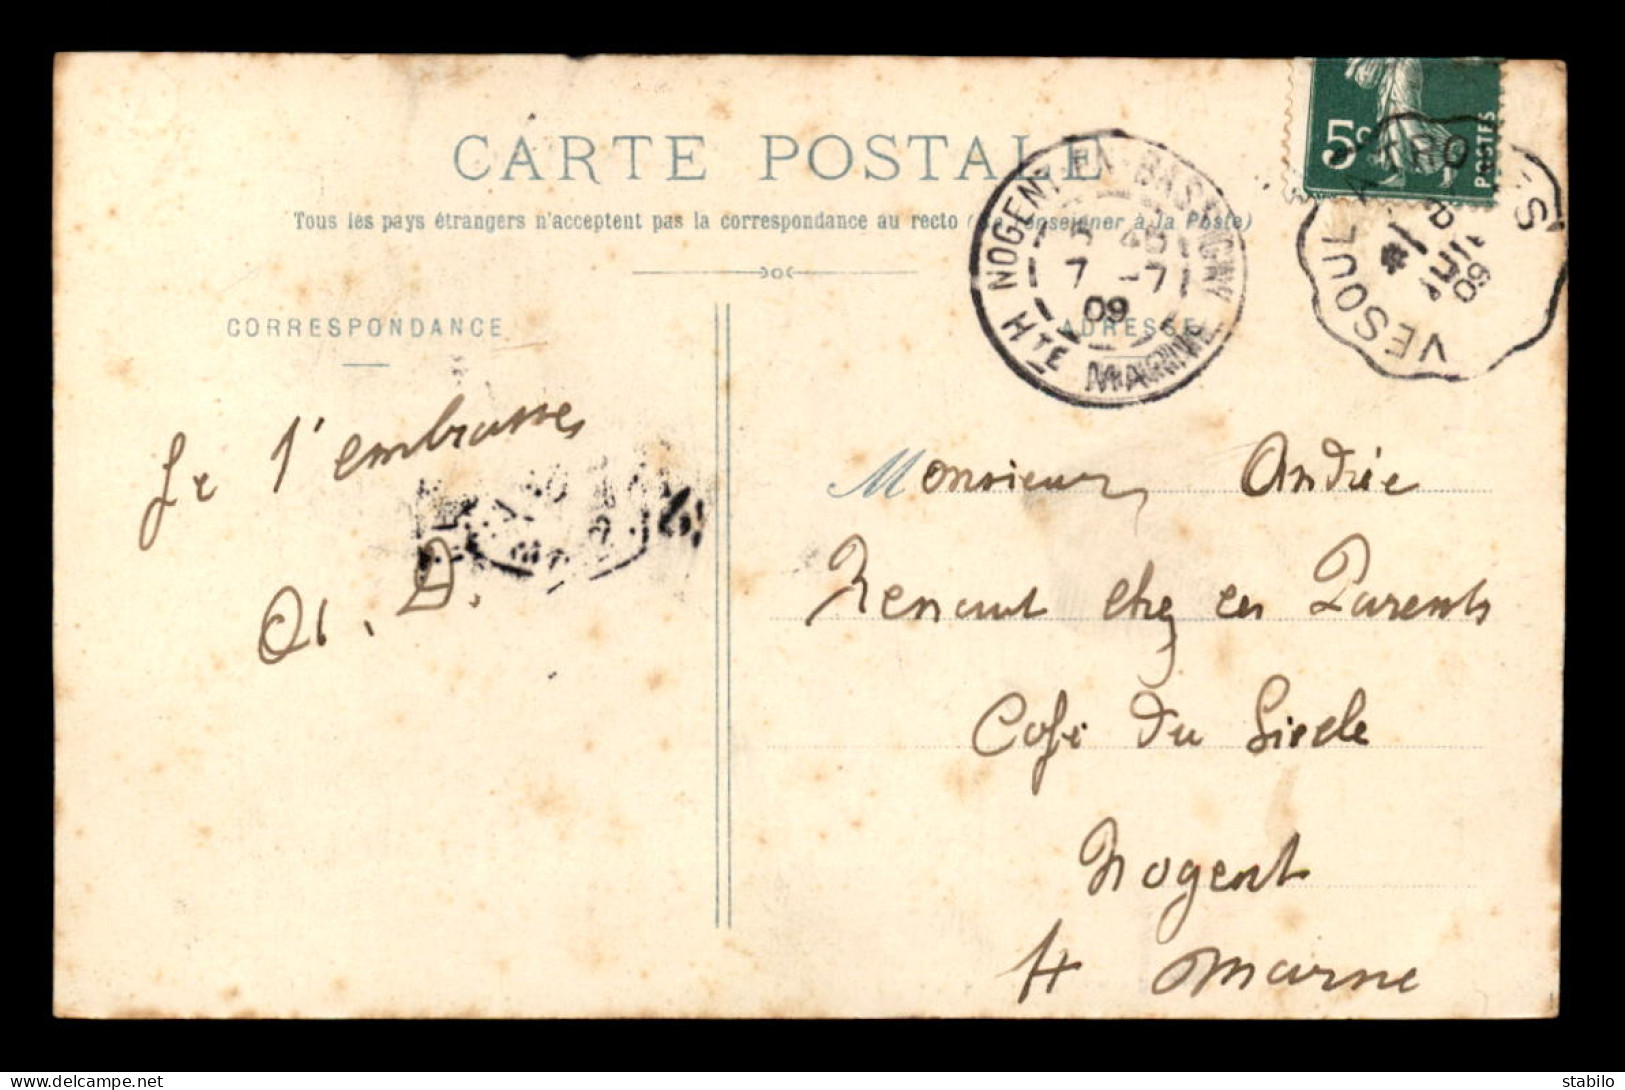 CARTE POSTALE
Tous les pays étrangers n'acceptent pas la correspondance au recto (Se renseigner à la Poste)
CORRESPONDANCE
ADRESSE
5c
POSTES
NOGENT-EN-BASSIGNY
7 -7
09
HTE MARNE
VESOUL
JUIL
09
Je t'embrasses
Monsieur André
Renaut chez ces Parents
Café du Siecle
Nogent
H Marne
delcampe.net
stabilo